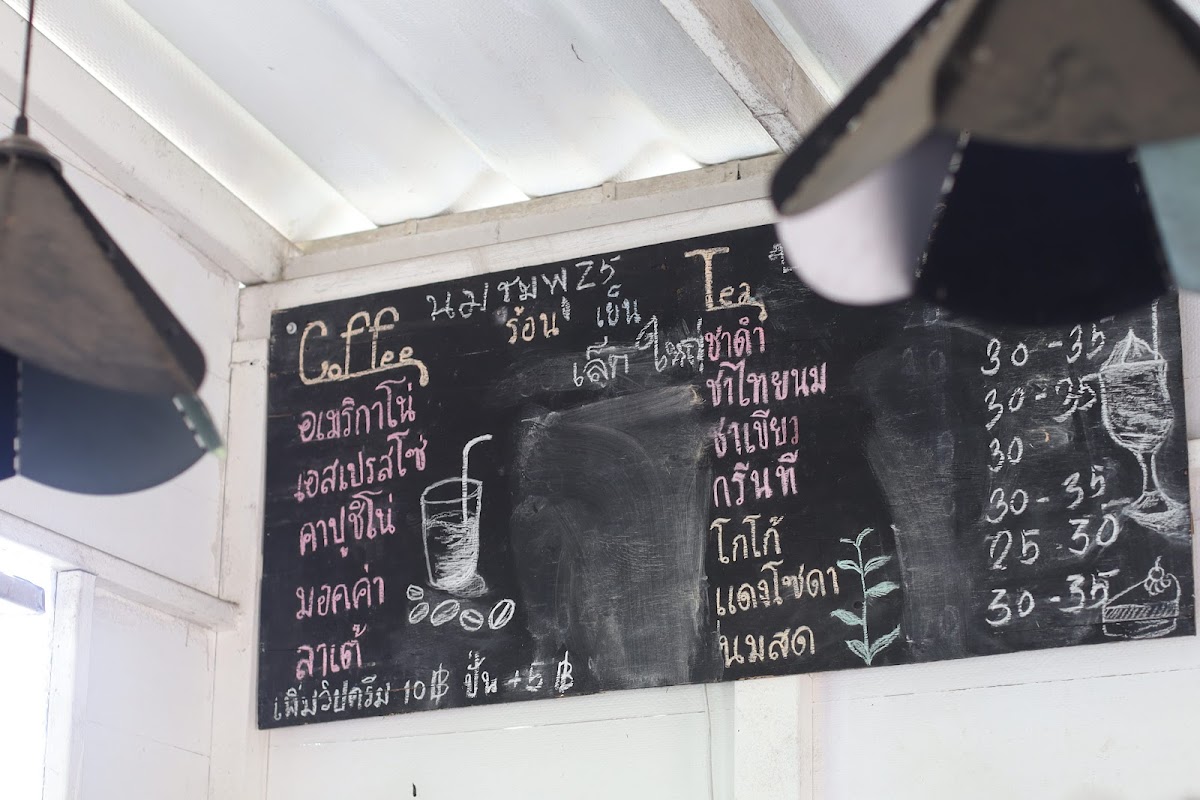 นมชมพู 25
Coffee
ร้อน เย็น
เล็ก ใหญ่
อเมริกาโน่
เอสเปรสโซ่
คาปูชิโน่
มอคค่า
ลาเต้
เพิ่มวิปครีม 10฿ ปั่น +5฿
Tea
ชาดำ 30-35
ชาไทยนม 30-35
ชาเขียว 30
กรีนที 30-35
โกโก้ 25-30
แดงโซดา 30-35
นมสด